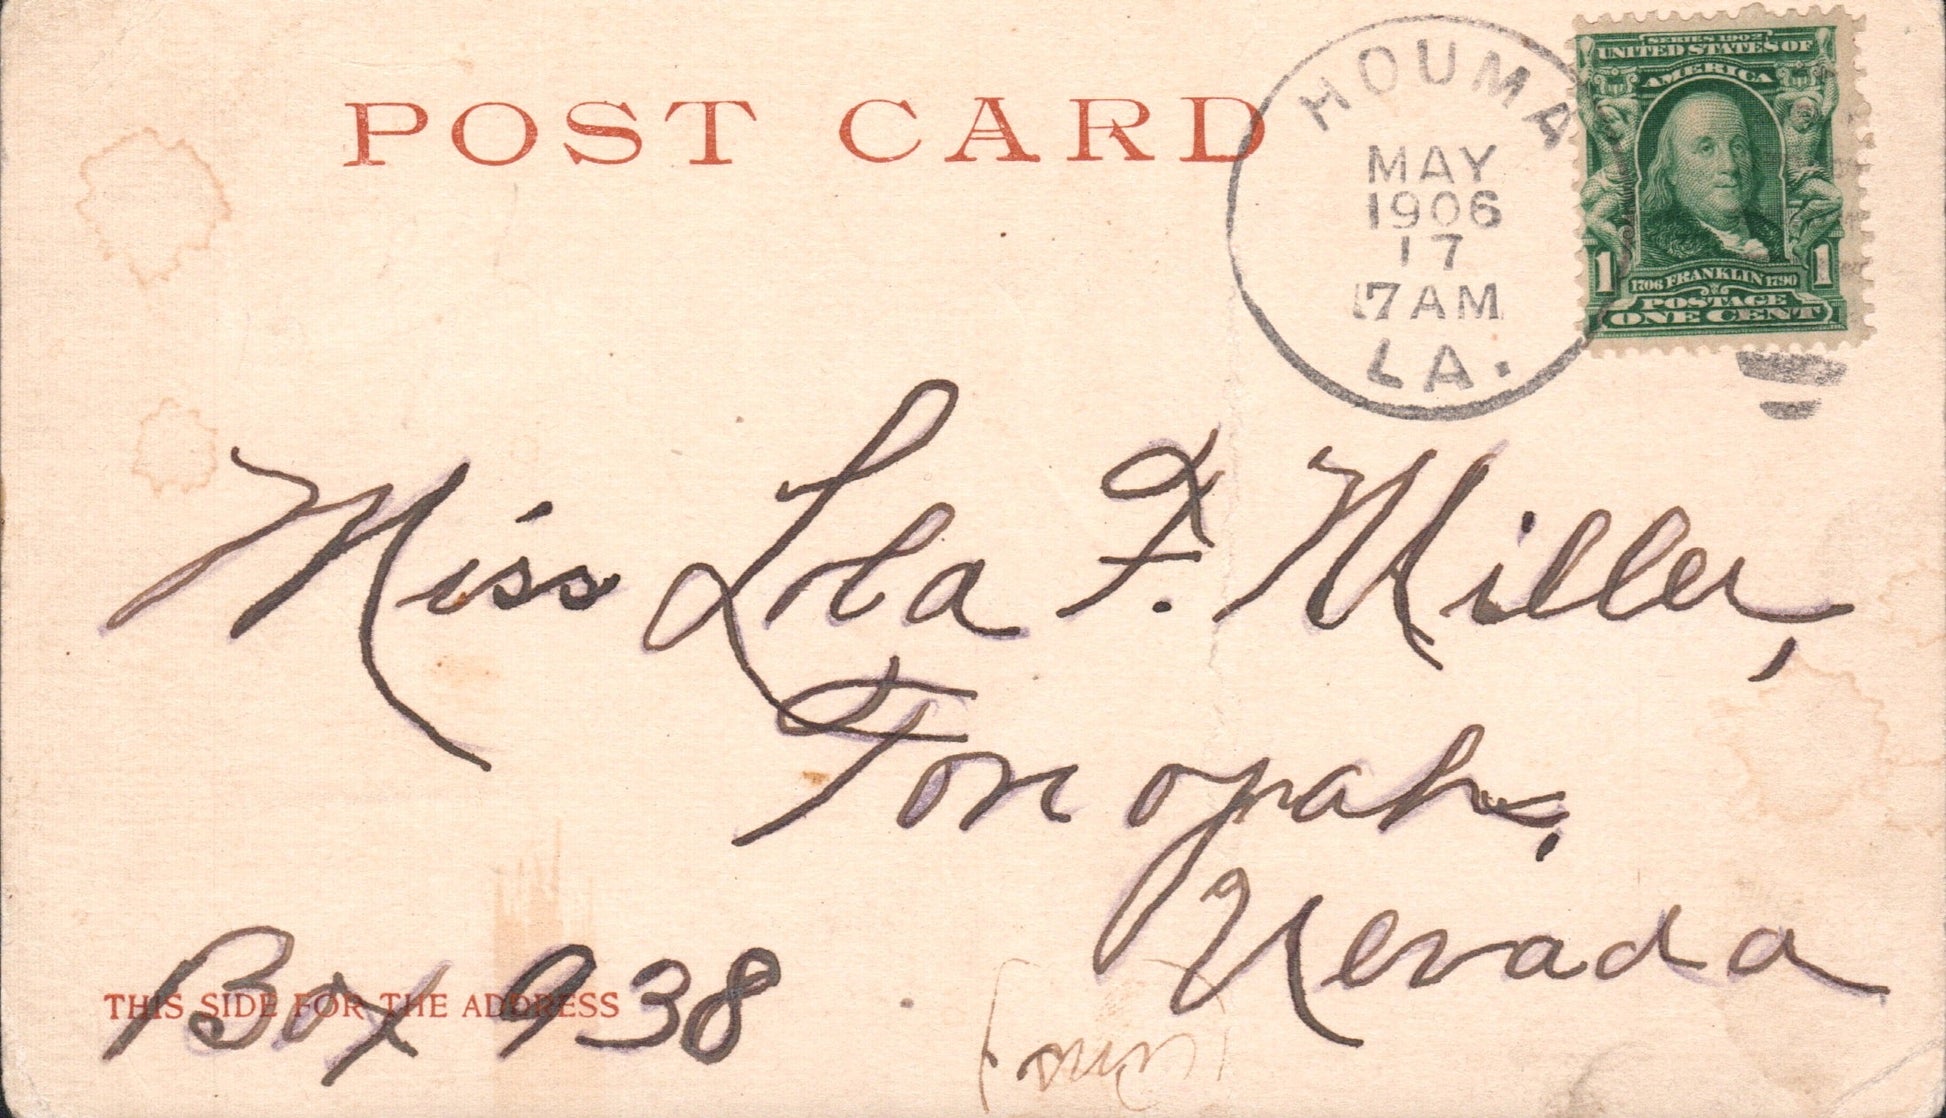 POST CARD
HOUMA
MAY
1906
17
7 AM
LA.
SERIES 1902
UNITED STATES OF
AMERICA
1 1
1706 FRANKLIN 1790
POSTAGE
ONE CENT
Miss Lola F. Miller,
Tonopah,
Nevada
Box 938
THIS SIDE FOR THE ADDRESS